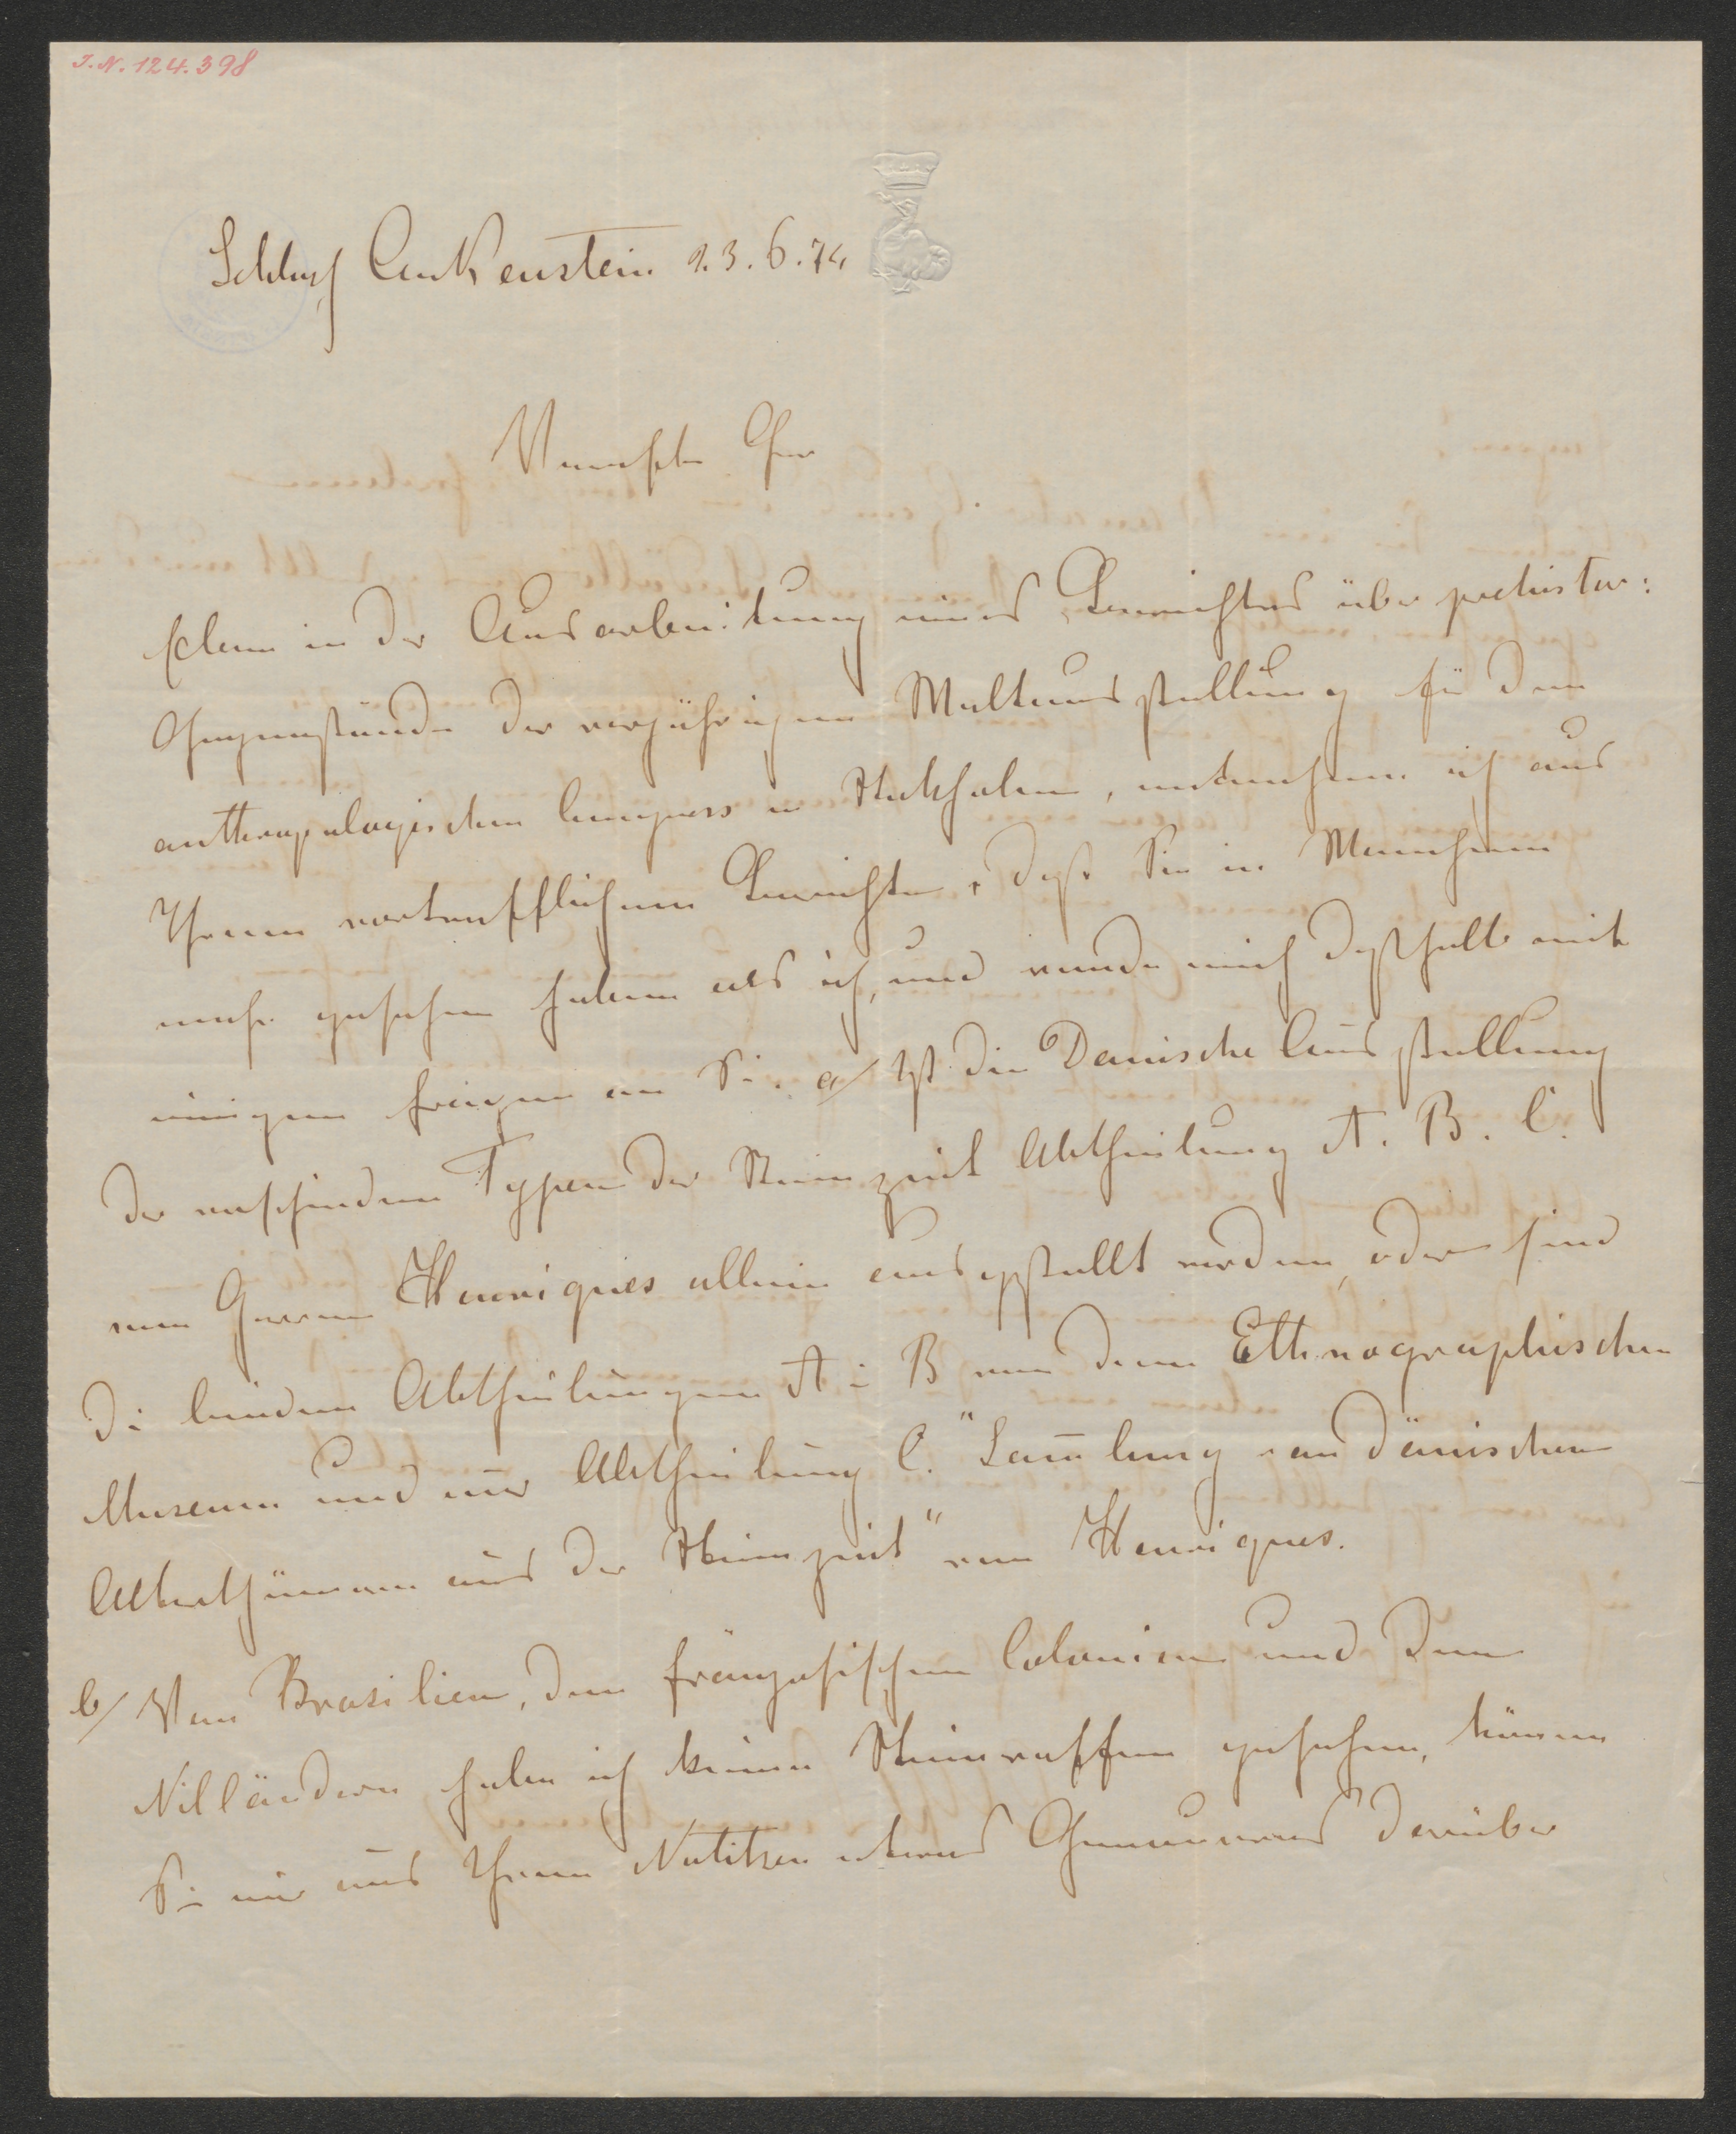 I.N. 124.398
Schloß Ankenstein 23.6.74
Verehrter Herr
Eben in der Ausarbeitung eines Berichtes über prehistor:
Gegenstände der vorjährigen Weltausstellung für den
anthropologischen Congress in Stokholm, entnehme ich aus
Ihrem vortrefflichen Berichte, daß Sie in Manchem
mehr gesehen haben als ich, und wende mich deßhalb mit
einigen Fragen an Sie. a/ Ist die Dänische Ausstellung
der verschiedenen Typen der Steinzeit Abtheilung A. B. C.
von Herrn Henriques allein ausgestellt worden, oder sind
die beiden Abtheilungen A u B von dem Ethnographischen
Museum und nur Abtheilung C. "Sam̄lung von dänischen
Alterthümern aus der Steinzeit" von Henriques.
b/ Von Brasilien, den französischen Colonien und den
Nilländern habe ich keine Steinwaffen gesehen, können
Sie mir aus Ihren Notitzen etwas Genaueres darüber